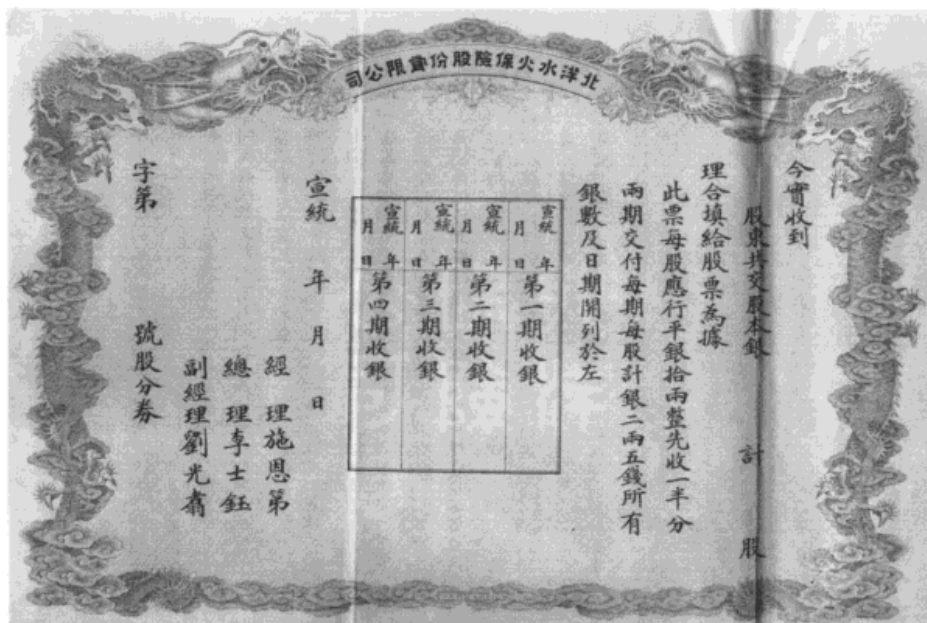 北洋水火保險股份有限公司
今實收到
股東共交股本銀 計 股
理合填給股票為據
此票每股應行平銀拾兩整先收一半分
兩期交付每期每股計銀二兩五錢所有
銀數及日期開列於左
宣統 年 月 日 第一期收銀
宣統 年 月 日 第二期收銀
宣統 年 月 日 第三期收銀
宣統 年 月 日 第四期收銀
宣統 年 月 日
經 理施恩第
總 理李士鈺
副經理劉光
字第 號股分券